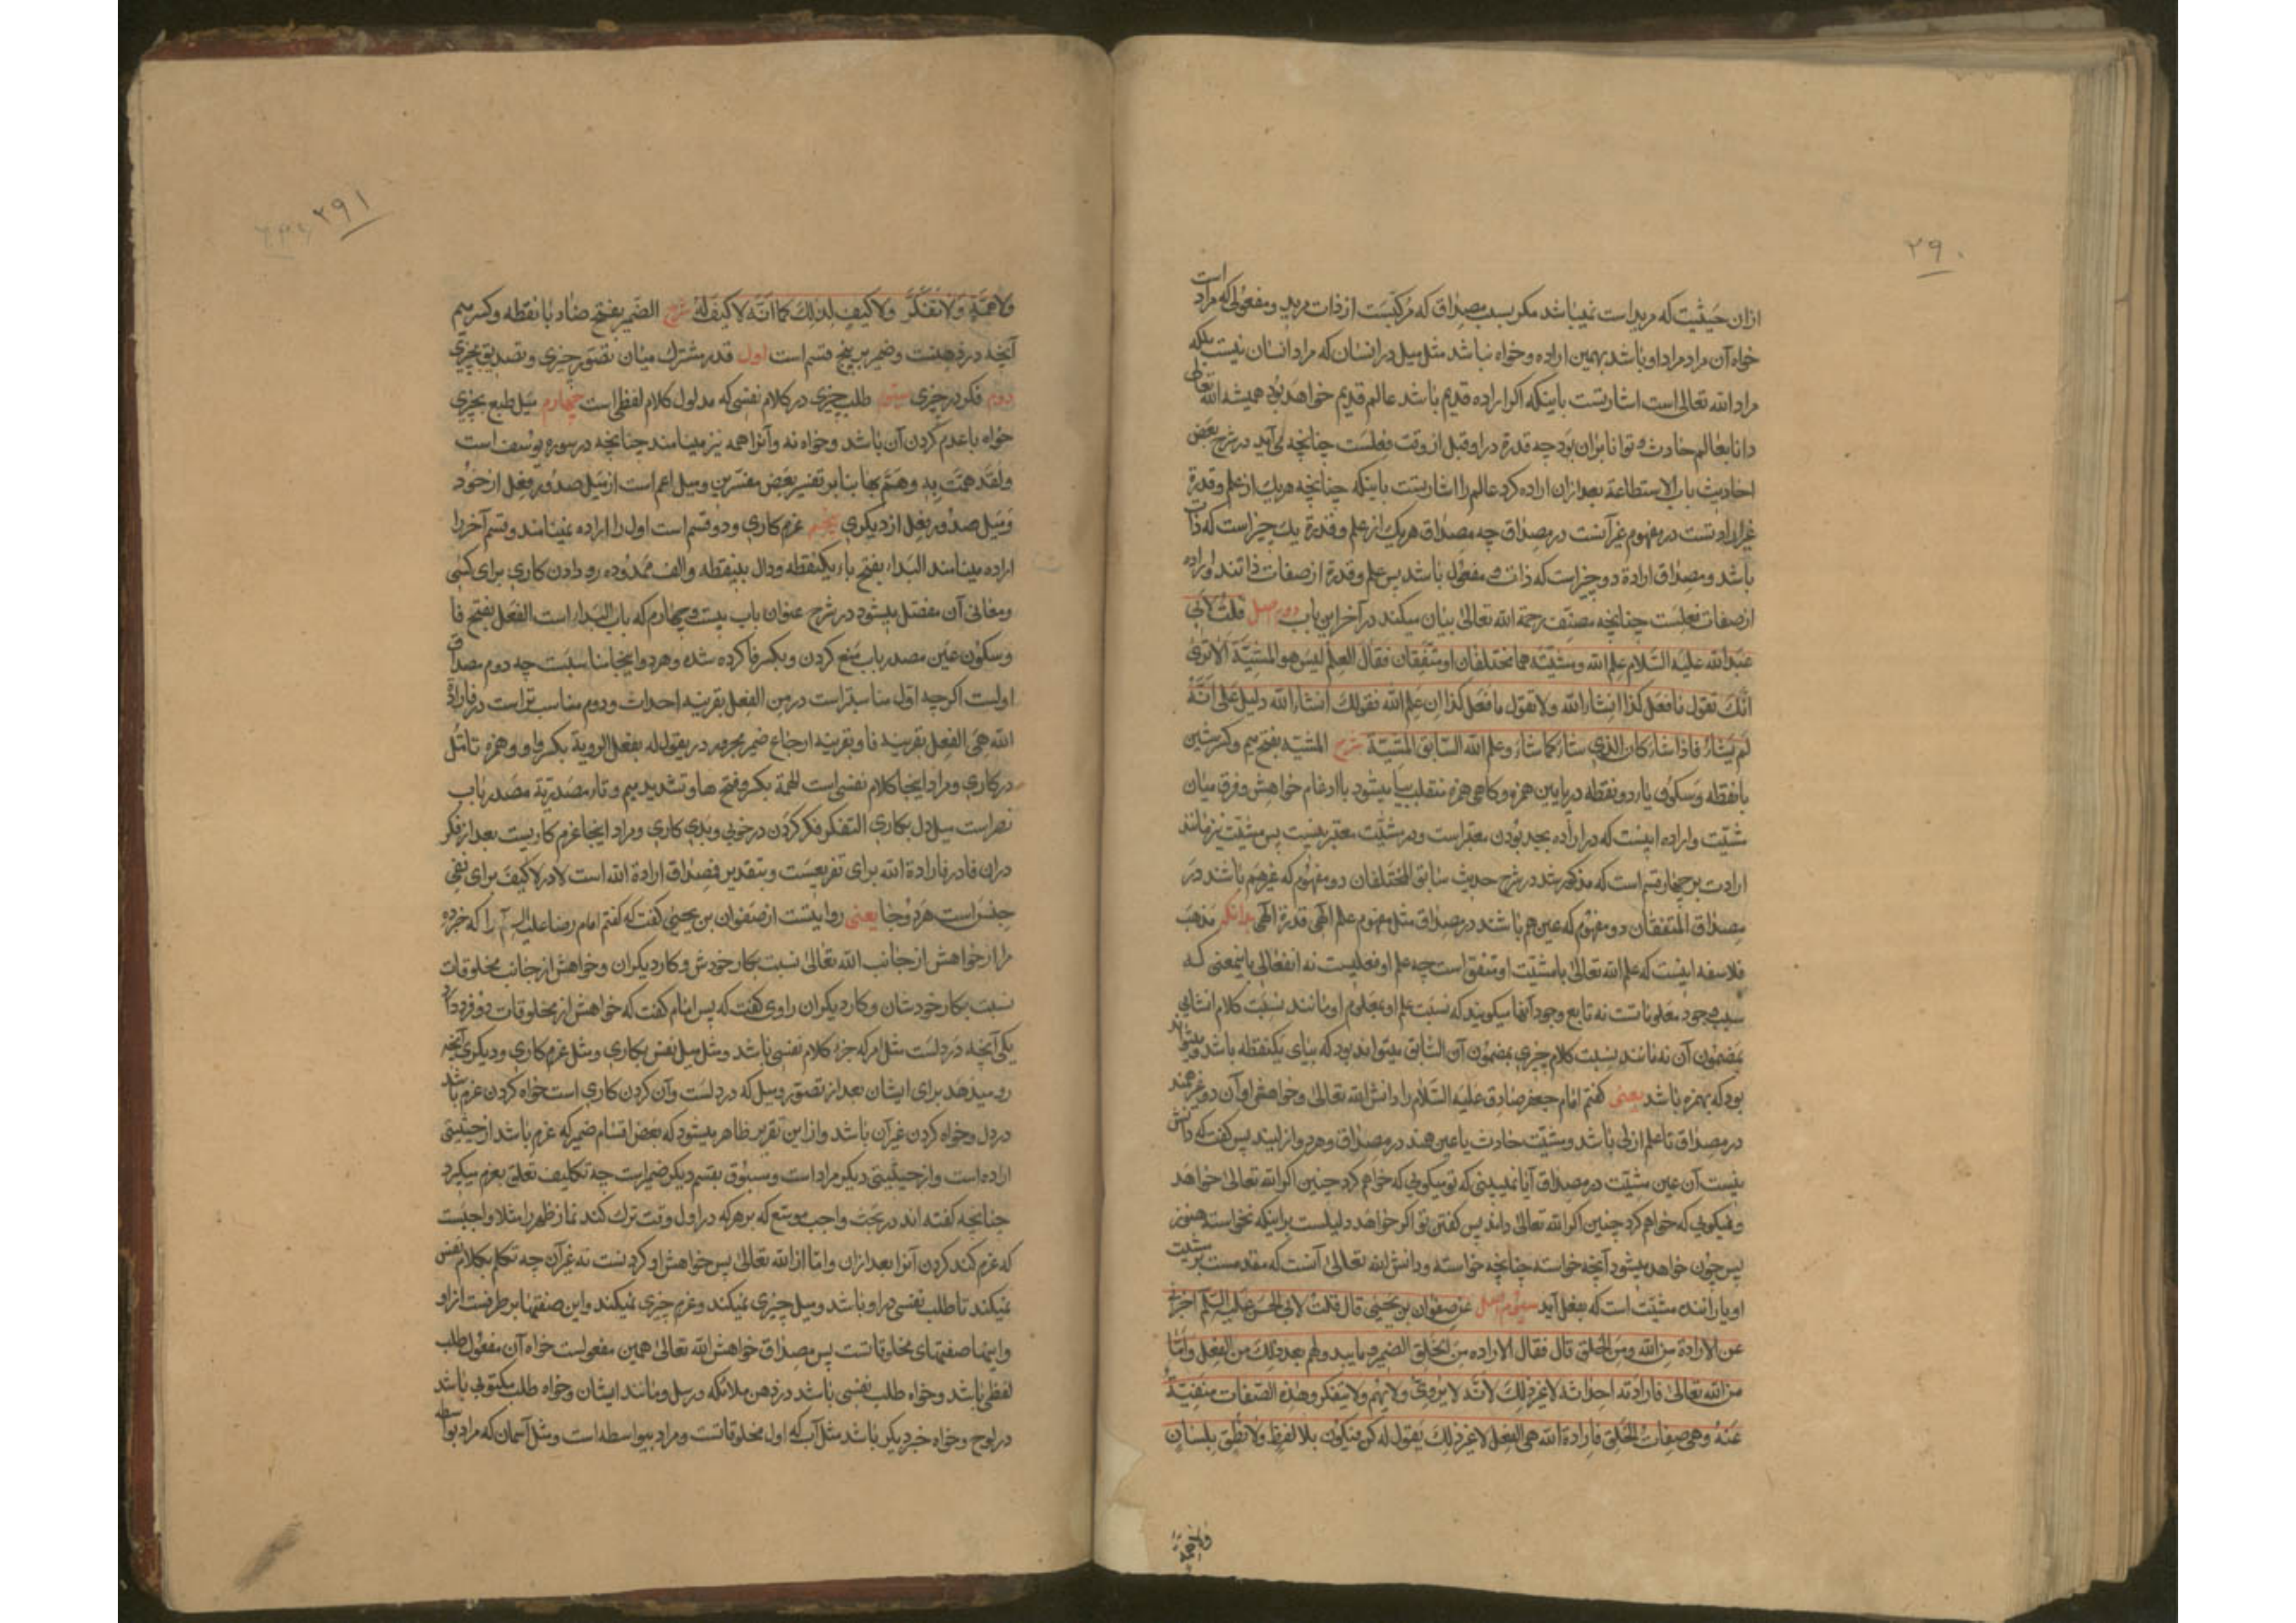 ۲۹۰
ازان حیثیت که مرید است نمیباشد مکر بسبب مصداق که مرکبست از ذات مرید و مفعولی که مراد است
خواه آن مراد مراد او باشد بهمین اراده و خواه نباشد مثل میل در انسان که مراد انسان نیست بلکه
مراد الله تعالی است اشارتست باینکه اکر اراده قدیم باشد عالم قدیم خواهد بود همیشه الله تعالی
دانا بعالم حادث و توانا بران بود چه قدرة در او قبل از وقت فعلست چنانچه می آید در شرح بعض
احادیث باب الاستطاعة بعد ازان اراده کرد عالم را اشارتست باینکه چنانچه هر یک از علم و قدرة
غیر ارادتست در مفهوم غیر آنست در مصداق چه مصداق هر یک از علم و قدرة یک چیز است که ذات
باشد و مصداق ارادة دو چیز است که ذات و مفعول باشد پس علم و قدرة از صفات ذاتند و اراده
از صفات فعلست چنانچه مصنف رحمة الله تعالی بیان میکند در آخر این باب دوم اصل قلت لابی
عبد الله علیه السلام علم الله و مشیته هما مختلفان او متفقان فقال العلم لیس هو المشیة الا تری
انک تقول سافعل کذا انشاء الله ولا تقول سافعل کذا ان علم الله فقولک انشاء الله دلیل علی انه
لم یشاء فاذا شاء کان الذی شاء کما شاء و علم الله السابق المشیة شرح المشیة بفتح میم و کسر شین
با نقطه و سکون یاء دو نقطه در پایین همزه و کاهی همزه منقلب بیا میشود با ادغام خواهش و فرق میان
مشیت و اراده اینست که در اراده بجد بودن معتبر است و در مشیت معتبر نیست پس مشیت نیز مانند
ارادت بر چهار قسم است که مذکور شد در شرح حدیث سابق المختلفان دو مفهوم که غیر هم باشند در
مصداق المتفقان دو مفهوم که عین هم باشند در مصداق مثل مفهوم علم الهی قدرة الهی بدانکه مذهب
فلاسفه اینست که علم الله تعالی با مشیت او متفق است چه علم او فعلیست نه انفعالی باینمعنی که
سبب وجود معلوماتست نه تابع وجود آنها میکویند که نسبت علم او بمعلوم او مانند نسبت کلام انشایی
بمضمون آن نه مانند نسبت کلام خبری بمضمون آن السابق میتواند بود که ببای یکنقطه باشد و میتواند
بود که بهمزه باشد یعنی کفتم امام جعفر صادق علیه السلام را دانش الله تعالی و خواهش او آن دو غیر همند
در مصداق تا علم ازلی باشد و مشیت حادث یا عین همند در مصداق و هر دو ازلیند پس کفت که دانش
نیست آن عین مشیت در مصداق آیا نمی‌بینی که تو میکویی که خواهم کرد چنین اکر الله تعالی خواهد
و نمیکویی که خواهم کرد چنین اکر الله تعالی داند پس کفتن تو اکر خواهد دلیلست بر اینکه نخواسته هنوز
پس چون خواهد میشود آنچه خواسته چنانچه خواسته و دانش الله تعالی آنست که مقدمست بر مشیت
او یا رانندهٔ مشیت است که بفعل آید سیوم اصل عن صفوان بن یحیی قال قلت لابی الحسن علیه السلام اخبرنی
عن الارادة من الله و من الخلق قال فقال الارادة من الخلق الضمیر و ما یبدو لهم بعد ذلک من الفعل و اما
من الله تعالی فارادته احداثه لا غیر ذلک لانه لا یروّی ولا یهم ولا یتفکر و هذه الصفات منفیة
عنه و هی صفات الخلق فارادة الله هی الفعل لا غیر ذلک یقول له کن فیکون بلا لفظ ولا نطق بلسان
ولا همة
۲۹۱
ولا همة ولا تفکر ولا کیف لذلک کما انه لا کیف له شرح الضمیر بفتح ضاد با نقطه و کسر میم
آنچه در ذهنست و ضمیر بر پنج قسم است اول قدر مشترک میان تصور چیزی و تصدیق بچیزی
دوم فکر در چیزی سیوم طلب چیزی در کلام نفسی که مدلول کلام لفظی است چهارم میل طبع بچیزی
خواه با عدم کردن آن باشد و خواه نه و آنرا همه نیز مینامند چنانچه در سوره یوسف است
و لقد همت به و هم بها بنا بر تفسیر بعض مفسرین و میل اعم است از میل صدور فعل از خود
و میل صدور فعل از دیکری پنجم عزم کاری و دو قسم است اول را اراده نمینامند و قسم آخر را
اراده مینامند البداء بفتح باء یکنقطه و دال بینقطه و الف ممدوده رو دادن کاری برای کسی
و معانی آن مفصل میشود در شرح عنوان باب بیست و چهارم که باب البداء است الفعل بفتح فا
و سکون عین مصدر باب منع کردن و بکسر فا کرده شده و هر دو اینجا مناسبست چه دوم مصداق
اولست اکر چه اول مناسبتر است در من الفعل بقرینه احداث و دوم مناسب تر است در فارادة
الله هی الفعل بقرینه فا و بقرینه ارجاع ضمیر مجرور در یقول له بفعل الرویة بکسر واو و همزه تامل
در کاری و مراد اینجا کلام نفسی است الهمة بکسر و فتح ها و تشدید میم و تاء مصدریة مصدر باب
نصر است میل دل بکاری التفکر فکر کردن در خوبی و بدی کاری و مراد اینجا عزم کاریست بعد از فکر
دران فا در فارادة الله برای تفریعست و بتقدیر فمصداق ارادة الله است لا در لا کیف برای نفی
جنس است هر دو جا یعنی روایتست از صفوان بن یحیی کفت که کفتم امام رضا علیه السلام را که خبر ده
مرا از خواهش از جانب الله تعالی نسبت بکار خودش و کار دیکران و خواهش از جانب مخلوقات
نسبت بکار خودشان و کار دیکران راوی کفت که پس امام کفت که خواهش از مخلوقات دو فرد دارد
یکی آنچه در دلست مثل امر که جزء کلام نفسی باشد و مثل میل نفس بکاری و مثل عزم کاری و دیکری آنچه
رو میدهد برای ایشان بعد از تصور و میل که در دلست و آن کردن کاری است خواه کردن عزم باشد
در دل و خواه کردن غیر آن باشد و ازین تقریر ظاهر میشود که بعض اقسام ضمیر که عزم باشد از حیثیتی
اراده است و از حیثیتی دیکر مراد است و مسبوق بقسم دیکر ضمیر است چه تکالیف تعلق بعزم میکیرد
چنانچه کفته اند در بحث واجب موسع که بر هر که در اول وقت ترک کند نماز ظهر را مثلا واجبست
که عزم کند کردن آنرا بعد ازان و اما از الله تعالی پس خواهش او کردنست نه غیر آن چه تکلم بکلام نفسی
نمیکند تا طلب نفسی در او باشد و میل چیزی نمیکند و عزم چیزی نمیکند و این صفتها بر طرفست از او
و اینها صفتهای مخلوقاتست پس مصداق خواهش الله تعالی همین مفعولست خواه آن مفعول طلب
لفظی باشد و خواه طلب نفسی باشد در ذهن ملائکه و رسل و مانند ایشان و خواه طلب مکتوبی باشد
در لوح و خواه خبر دیکر باشد مثل آب که اول مخلوقاتست و مراد بیواسطه است و مثل آسمان که مراد بواسطه